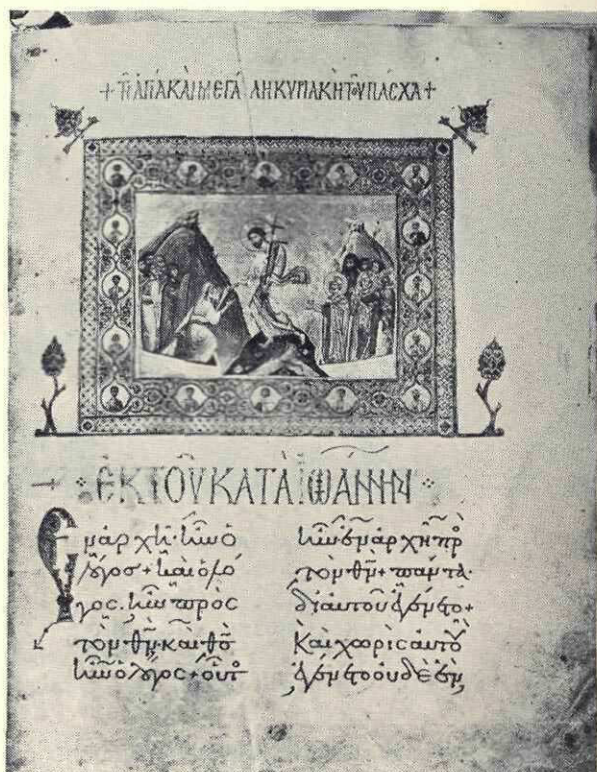 + Τῌ ΑΓΙΑ ΚΑΙ ΜΕΓΑΛΗ ΚΥΡΙΑΚΗ ΤΟΥ ΠΑΣΧΑ +
+ ΕΚ ΤΟΥ ΚΑΤΑ ΙΩΑΝΝΗΝ
Ἐν ἀρχῆ· ἦν ὁ
λόγος + καὶ ὁ λό
γος. ἦν πρὸς
τὸν θν̅· καὶ θς̅
ἦν ὁ λόγος + οὗτ
ἦν ἐν ἀρχῆ πρ
τὸν θν̅ + πάντα
δι αυτοῦ ἐγένετο +
Καὶ χωρὶς αὐτοῦ
ἐγένετο οὐδὲ ἕν